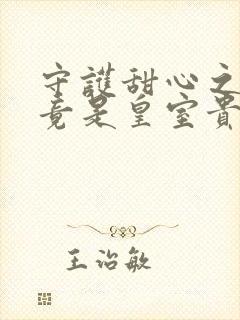 守護甜心之
竟是皇室貴
王治敏